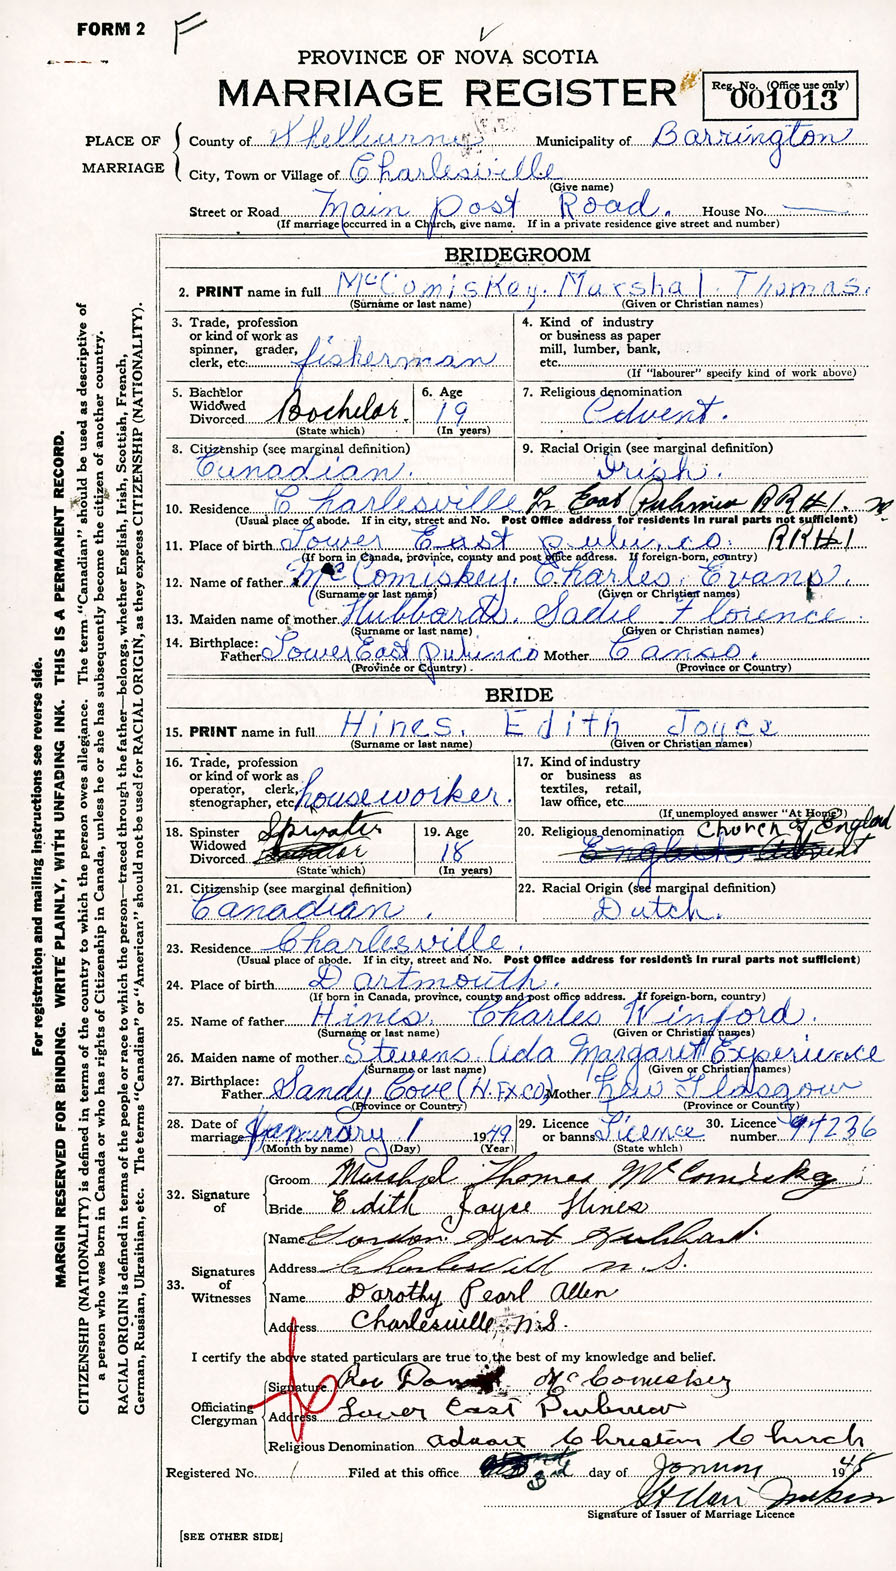 FORM 2 F
PROVINCE OF NOVA SCOTIA
MARRIAGE REGISTER
Reg. No. (Office use only)
001013
PLACE OF MARRIAGE
County of Shelburne Municipality of Barrington
City, Town or Village of Charlesville
(Give name)
Street or Road Main post Road. House No. —
(If marriage occurred in a Church, give name. If in a private residence give street and number)
BRIDEGROOM
2. PRINT name in full McComiskey. Marshal. Thomas.
(Surname or last name) (Given or Christian names)
3. Trade, profession or kind of work as spinner, grader, clerk, etc. fisherman
4. Kind of industry or business as paper mill, lumber, bank, etc.
(If "labourer" specify kind of work above)
5. Bachelor Widowed Divorced Bachelor.
(State which)
6. Age 19
(In years)
7. Religious denomination Advent.
8. Citizenship (see marginal definition) Canadian.
9. Racial Origin (see marginal definition) Irish.
10. Residence Charlesville East RR#1.
(Usual place of abode. If in city, street and No. Post Office address for residents in rural parts not sufficient)
11. Place of birth Lower East pubnico. RR#1
(If born in Canada, province, county and post office address. If foreign-born, country)
12. Name of father McComiskey. Charles. Evans.
(Surname or last name) (Given or Christian names)
13. Maiden name of mother Hubbard. Sadie Florence.
(Surname or last name) (Given or Christian names)
14. Birthplace: Father Lower East Pubnico Mother Canso.
(Province or Country) (Province or Country)
BRIDE
15. PRINT name in full Hines. Edith Joyce
(Surname or last name) (Given or Christian names)
16. Trade, profession or kind of work as operator, clerk, stenographer, etc. houseworker.
17. Kind of industry or business as textiles, retail, law office, etc.
(If unemployed answer "At Home")
18. Spinster Widowed Divorced Spinster
(State which)
19. Age 18
(In years)
20. Religious denomination Church of England
21. Citizenship (see marginal definition) Canadian.
22. Racial Origin (see marginal definition) Dutch.
23. Residence Charlesville.
(Usual place of abode. If in city, street and No. Post Office address for residents in rural parts not sufficient)
24. Place of birth Dartmouth.
(If born in Canada, province, county and post office address. If foreign-born, country)
25. Name of father Hines. Charles Winford.
(Surname or last name) (Given or Christian names)
26. Maiden name of mother Stevens. Ada Margaret Experience
(Surname or last name) (Given or Christian names)
27. Birthplace: Father Sandy Cove (H.FX CO) Mother New Glasgow
(Province or Country) (Province or Country)
28. Date of marriage January 1 1949
(Month by name) (Day) (Year)
29. Licence or banns Licence
(State which)
30. Licence number 94236
32. Signature of
Groom Marshal Thomas McComiskey
Bride Edith Joyce Hines
33. Signatures of Witnesses
Name Gordon Hubbard.
Address Charlesville N.S.
Name Dorothy Pearl Allen
Address Charlesville N.S.
I certify the above stated particulars are true to the best of my knowledge and belief.
Officiating Clergyman
Signature Rev McComiskey
Address Lower East Pubnico
Religious Denomination Advent Christian Church
Registered No. 1 Filed at this office 3rd day of January 19
Signature of Issuer of Marriage Licence
[SEE OTHER SIDE]
For registration and mailing instructions see reverse side.
MARGIN RESERVED FOR BINDING. WRITE PLAINLY, WITH UNFADING INK. THIS IS A PERMANENT RECORD.
CITIZENSHIP (NATIONALITY) is defined in terms of the country to which the person owes allegiance. The term "Canadian" should be used as descriptive of
a person who was born in Canada or who has rights of Citizenship in Canada, unless he or she has subsequently become the citizen of another country.
RACIAL ORIGIN is defined in terms of the people or race to which the person—traced through the father—belongs, whether English, Irish, Scottish, French,
German, Russian, Ukrainian, etc. The terms "Canadian" or "American" should not be used for RACIAL ORIGIN, as they express CITIZENSHIP (NATIONALITY).